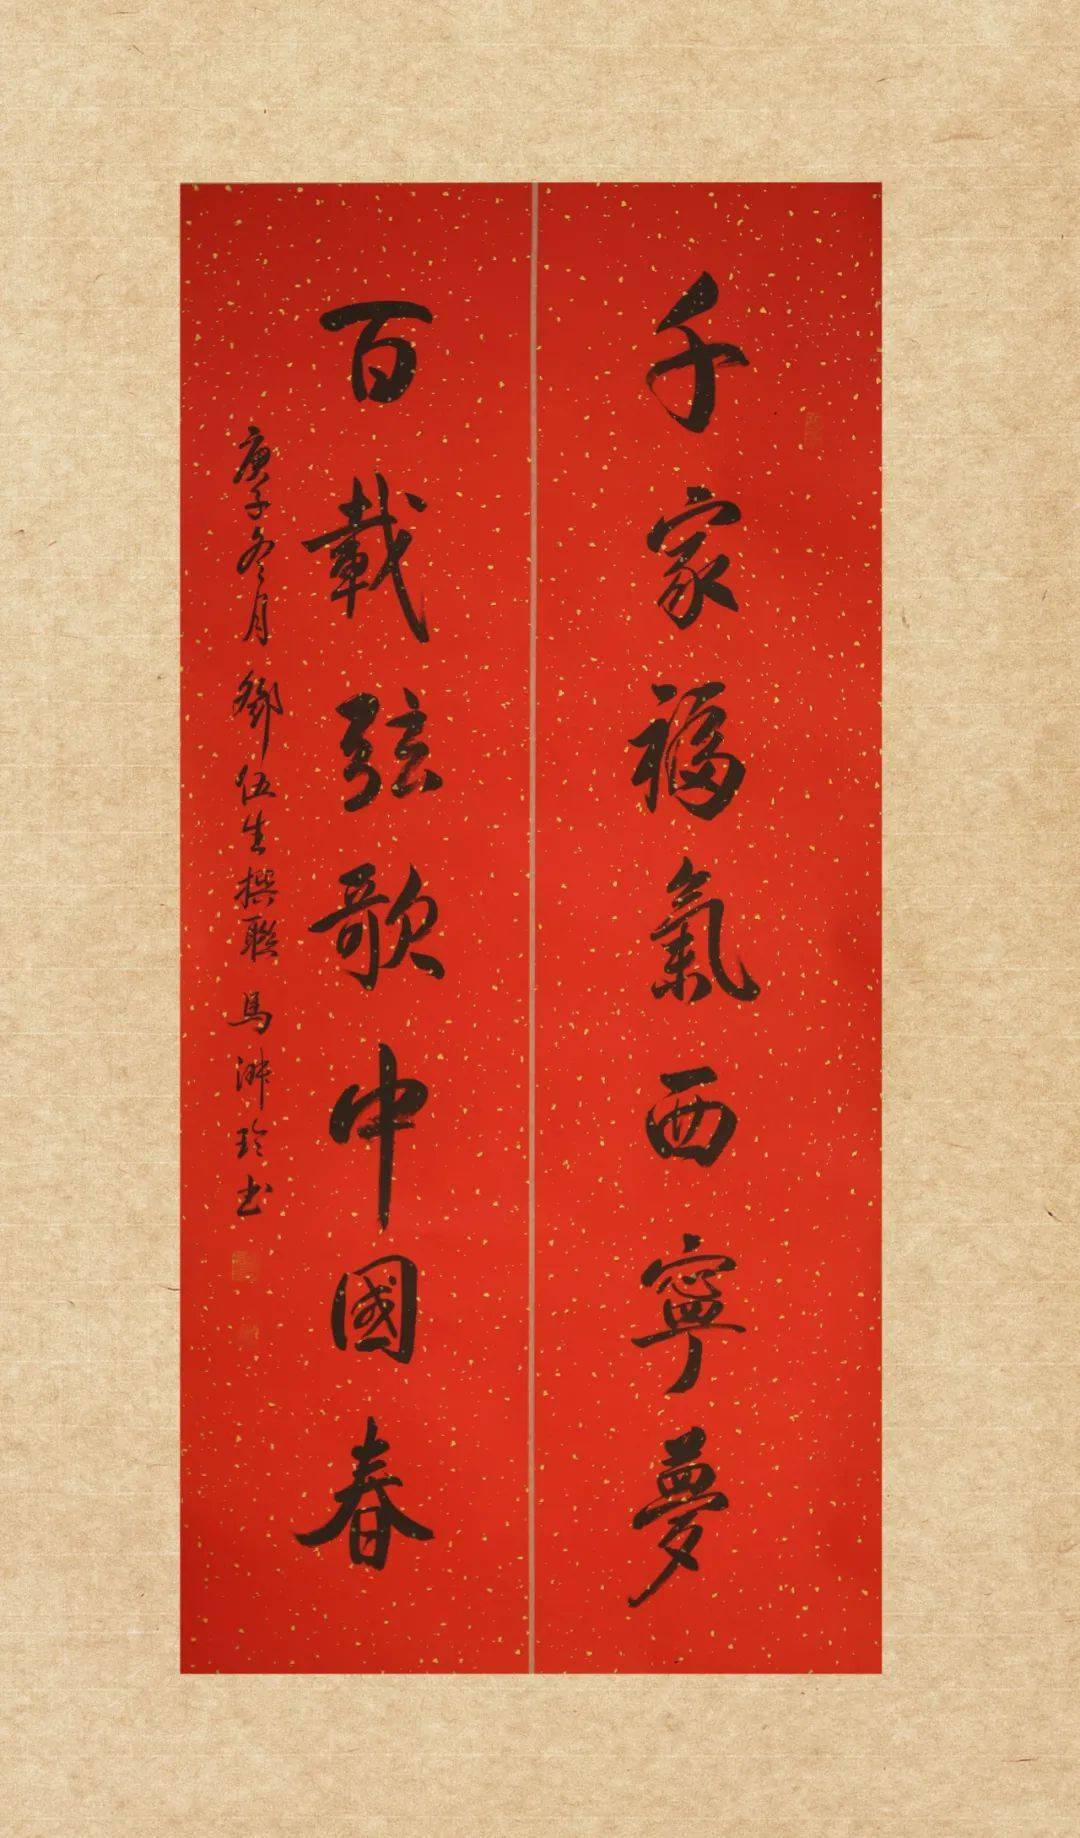 千家福氣西寧夢
百載弦歌中國春
庚子冬月 鄧伍生撰聯 馬淋玲書